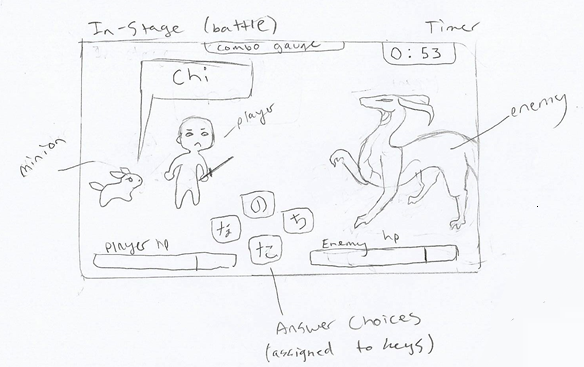 In-Stage (battle)
Timer
combo gauge
0:53
Chi
player
enemy
minion
の
な
ち
た
Player hp
Enemy hp
Answer Choices
(assigned to keys)